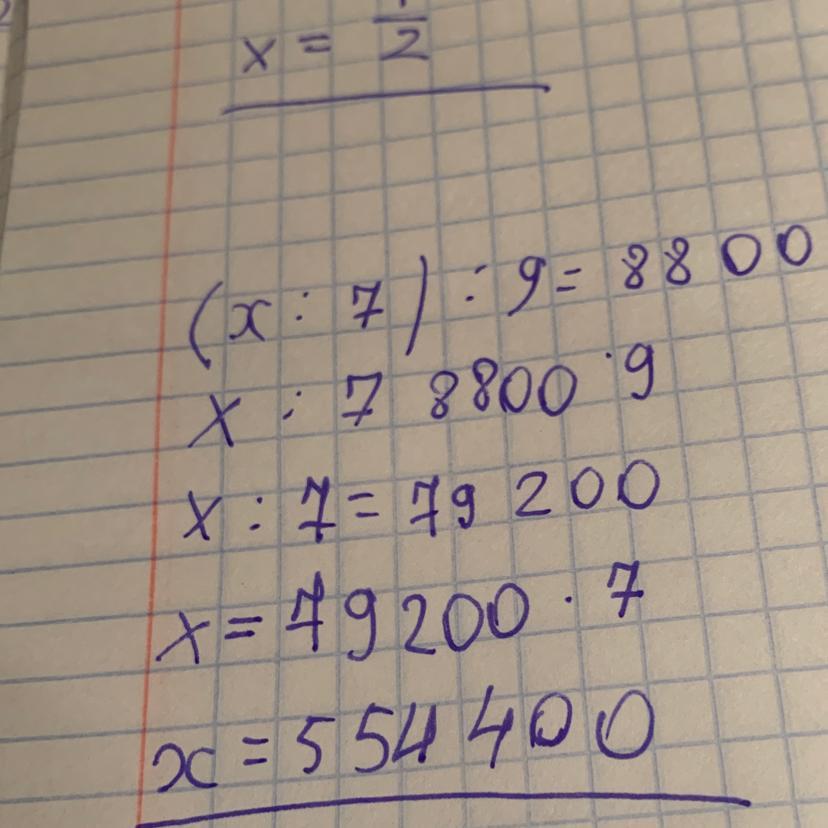 x = 1/2
(x : 7) : 9 = 8800
x : 7 8800 · 9
x : 7 = 79 200
x = 79200 · 7
x = 554 400